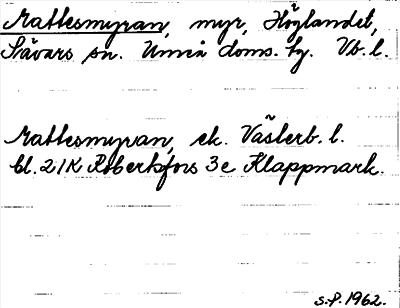 Mattesmyran, myr, Höglandet,
Sävars sn. Umeå doms. hg. Vb. l.
Mattesmyran, ek. Västerb. l.
bl. 21K Robertsfors 3e Klappmark.
s.f. 1962.